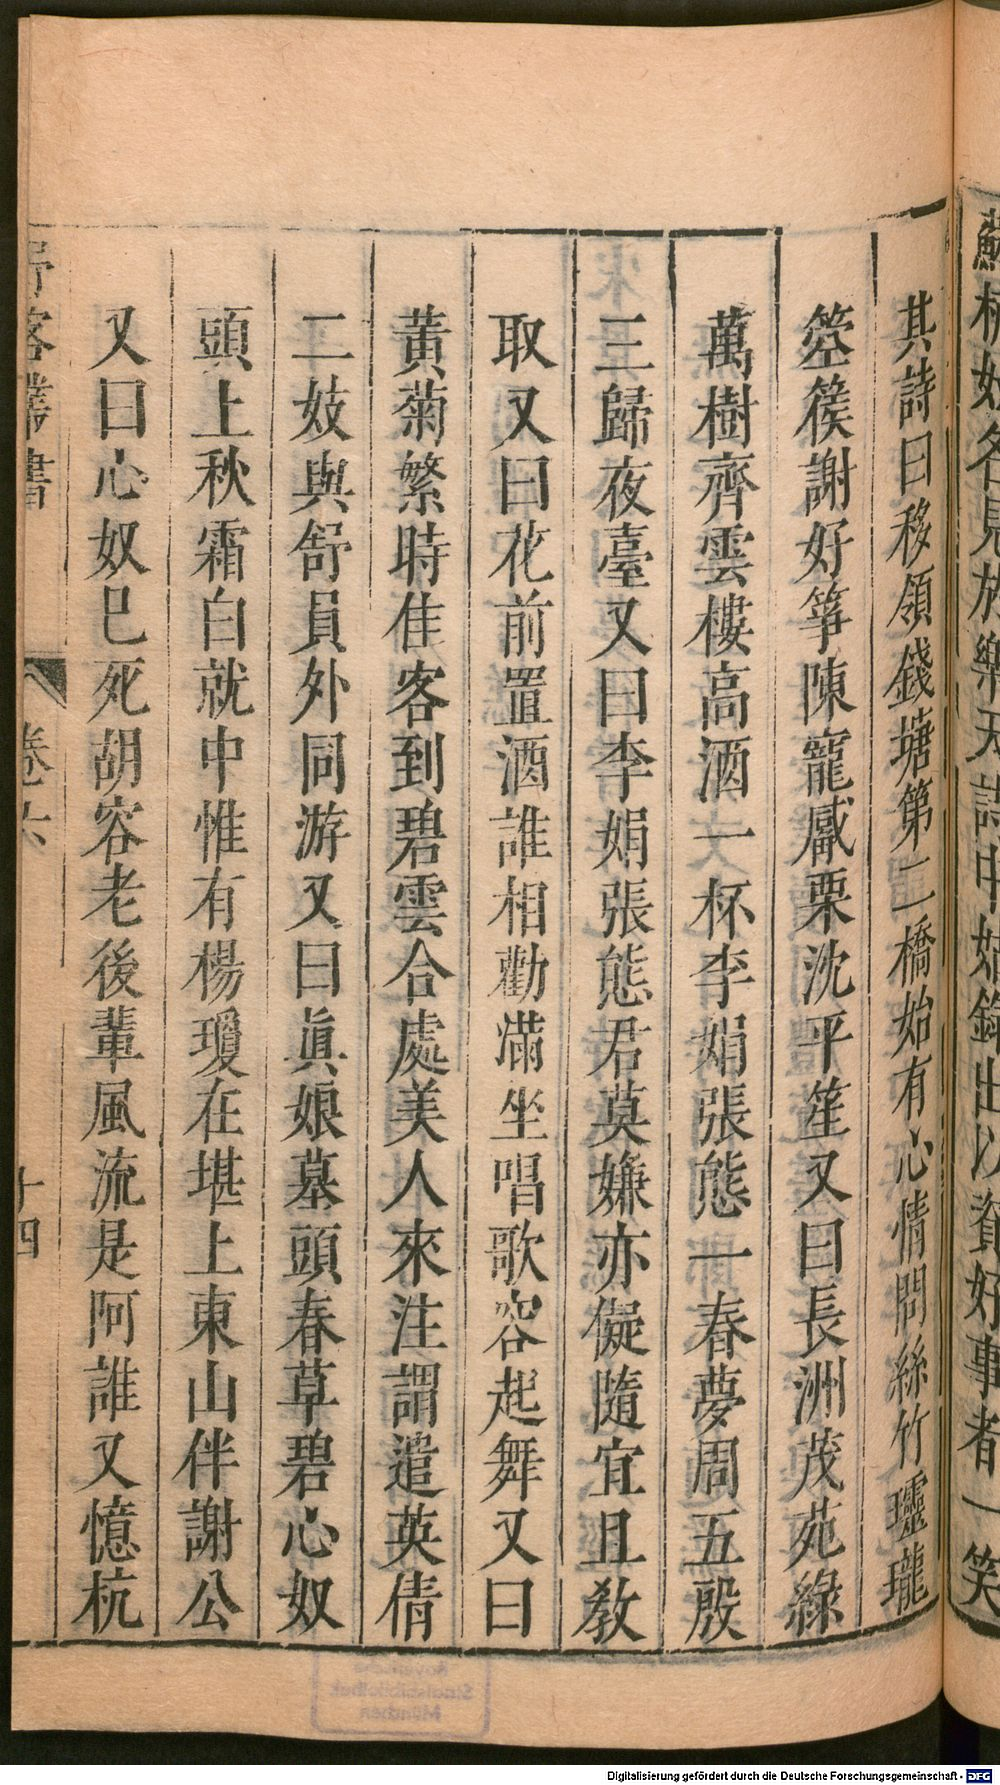 蘇杭妓名見於樂天詩中姑錄出以資好事者一笑
其詩曰移領錢塘第二橋始有心情問絲竹瓏瓏
箜篌謝好箏陳寵觱栗沈平笙又曰長洲茂苑綠
萬樹齊雲樓高酒一杯李娟張態一春夢周五殷
三歸夜臺又曰李娟張態君莫嫌亦儗隨宜且教
取又曰花前置酒誰相勸滿坐唱歌容起舞又曰
黃菊繁時佳客到碧雲合處美人來注謂遣英倩
二妓與舒員外同游又曰眞娘墓頭春草碧心奴
頭上秋霜白就中惟有楊瓊在堪上東山伴謝公
又曰心奴已死胡容老後輩風流是阿誰又憶杭
野客叢書
卷六
十四
Digitalisierung gefördert durch die Deutsche Forschungsgemeinschaft - DFG